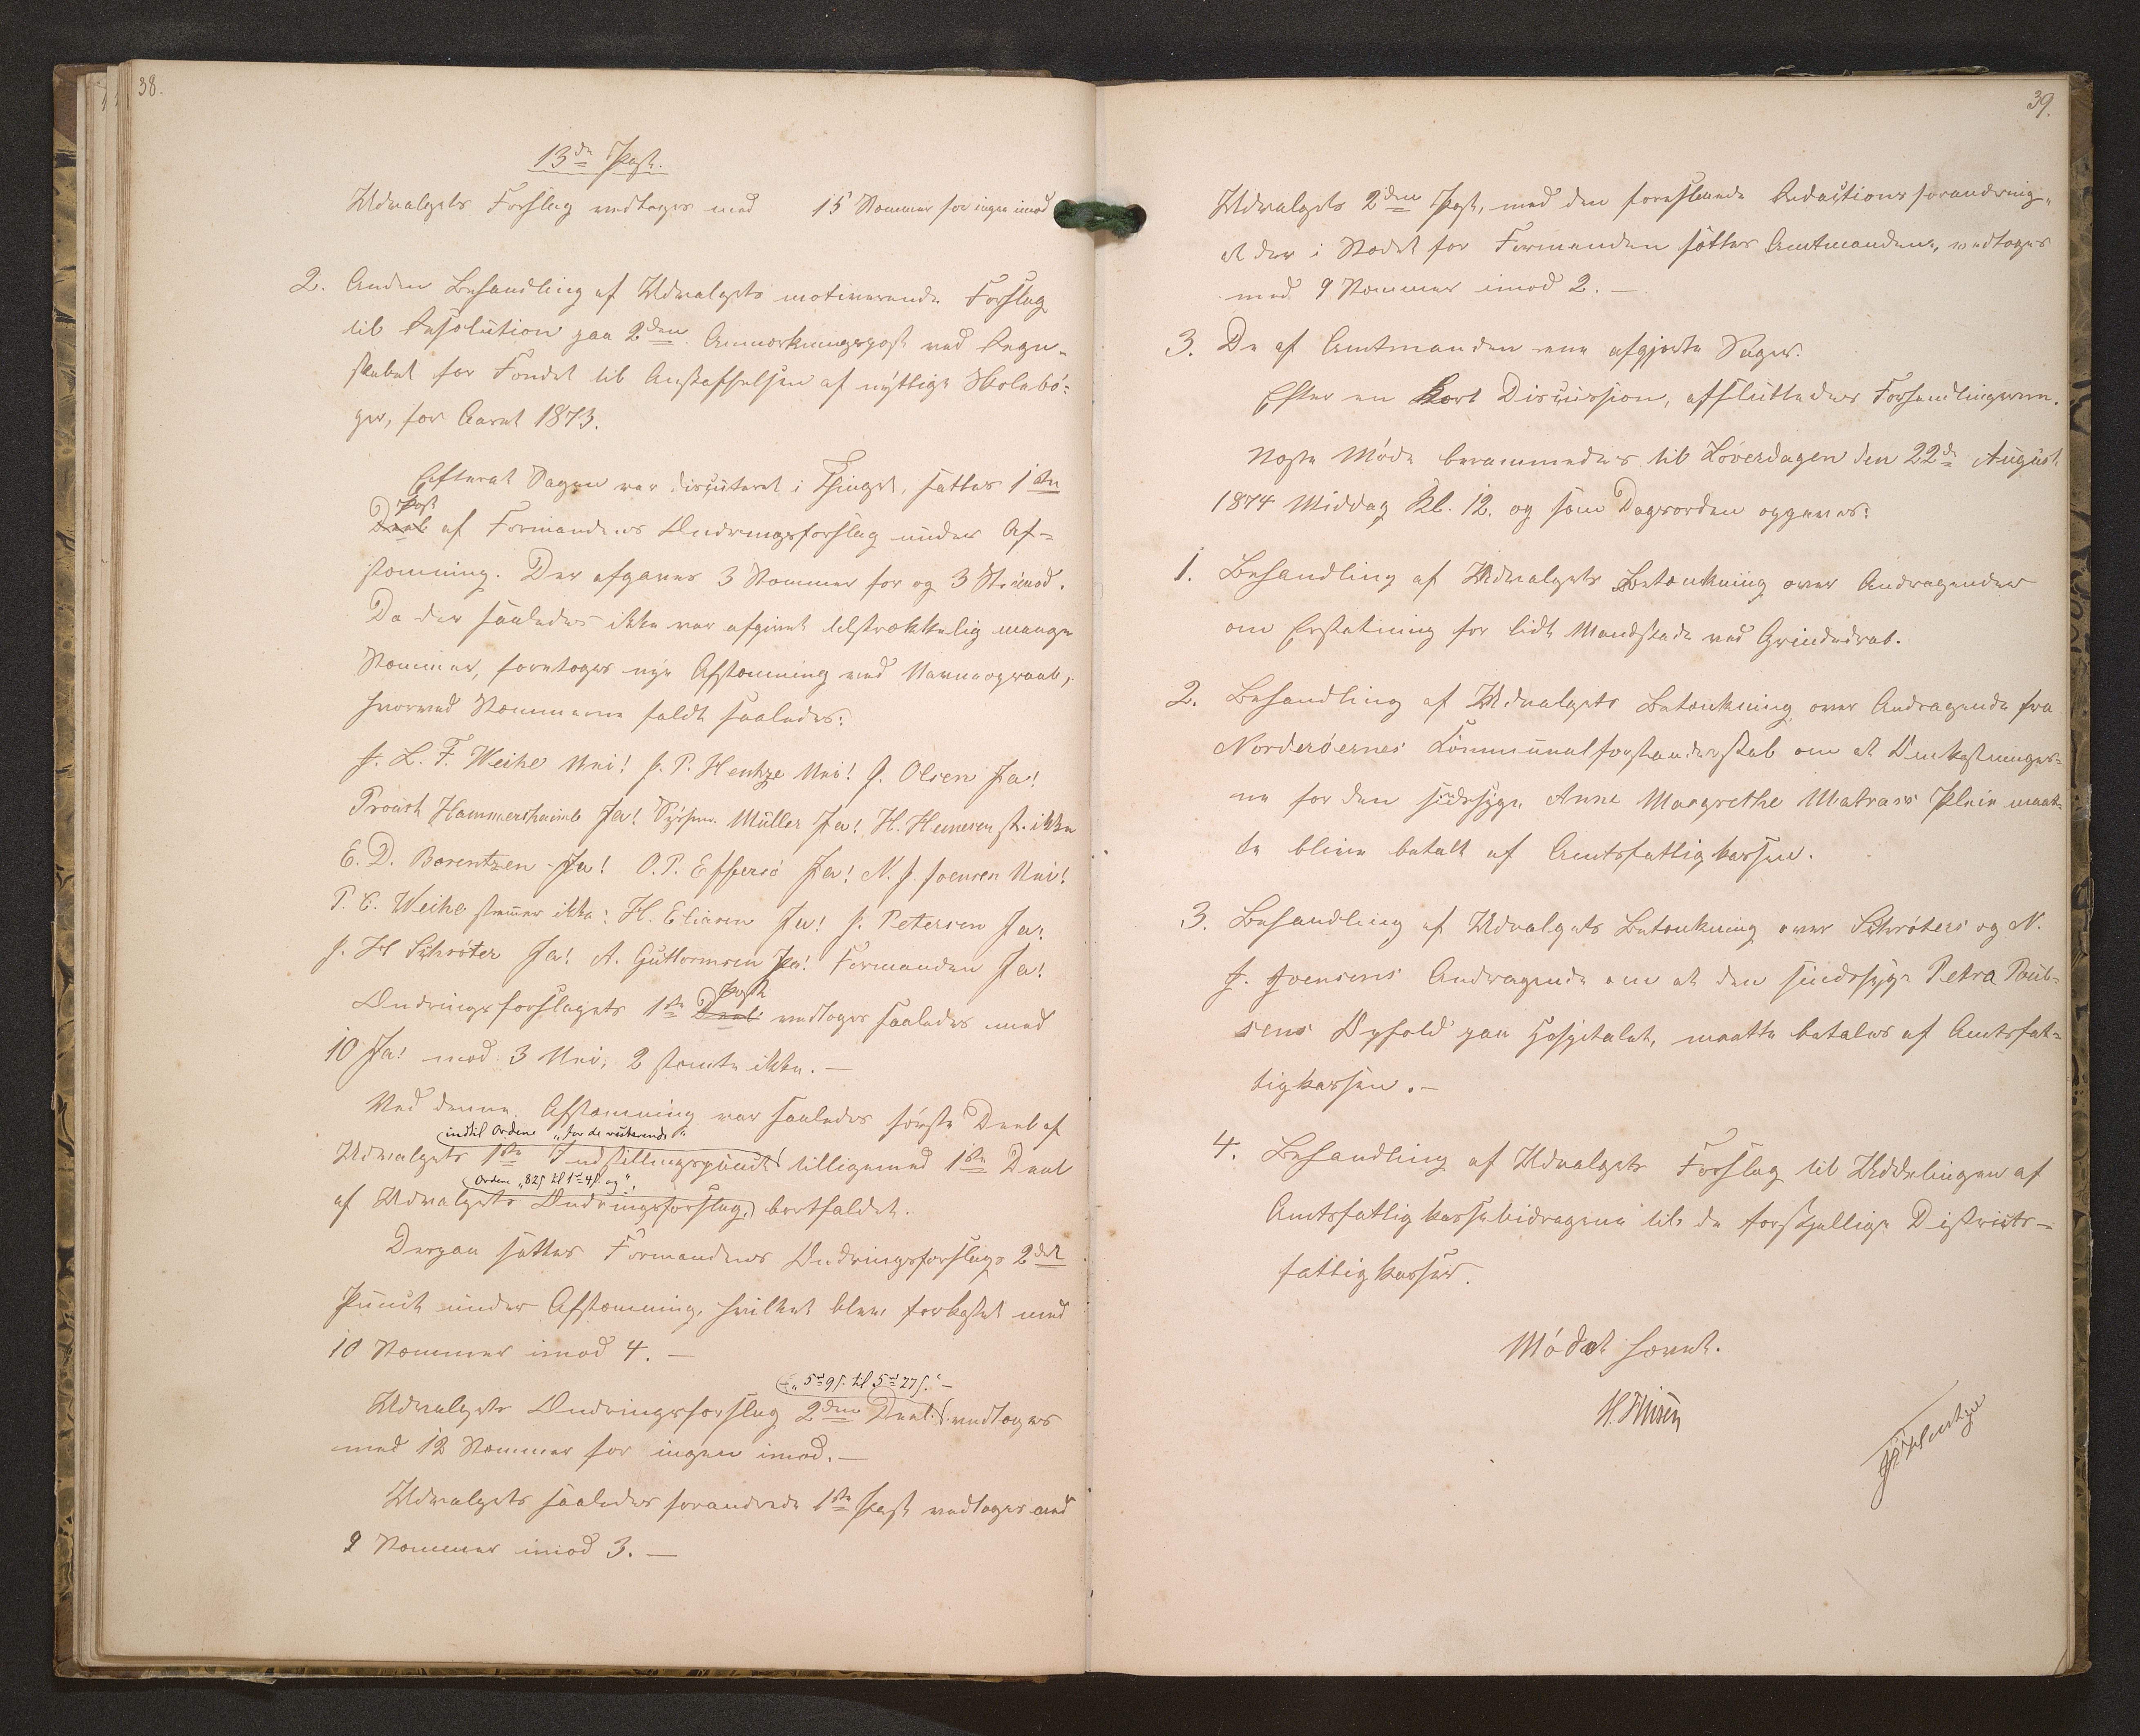 38.
13de Post.
Udvalgets Forslag vedtoges med 15 Stemmer for ingen imod
2. Anden Behandling af Udvalgets motiverende Forslag
til Resolution paa 2den Anmærkningspost ved Regn-
skabet for Fondet til Anskaffelsen af nyttige Skolebö-
ger, for Aaret 1873.
Efterat Sagen var discuteret i Thinget, sattes 1ste
Post
Deel af Formandens Ændringsforslag under Af-
stemning. Der afgaves 3 Stemmer for og 3 St. imod.
Da der saaledes ikke var afgivet tilstrækkelig mange
Stemmer, foretoges nye Afstemning ved Navneopraab,
hvorved Stemmerne faldt saaledes:
J. L. F. Weihe Nei! J. P. Hentze Nei! J. Olsen Ja!
Proust Hammershaimb Ja! Sysselm. Müller Ja! H. Hansen st. ikke
E. D. Bærentzen Ja! O. P. Effersö Ja! N. J. Joensen Nei!
P. C. Weihe stemmer ikke: H. Eliasen Ja! J. Petersen Ja!
J. H Schröter Ja! A. Guttormsen Ja! Formanden Ja!
Post
Ændringsforslagets 1ste Deel vedtoges saaledes med
10 Ja! mod 3 Nei, 2 stemte ikke. —
Ved denne Afstemning var saaledes første Deel af
indtil Ordene "for de resterende"
Udvalgets 1ste Indstillingspunct tilligemed 1ste Deel
Ordene "82 ʃ til 1 rd 4 ʃ og"
af Udvalgets Ændringsforslag, bortfaldet.
Derpaa sattes Formandens Ændringsforslags 2det
Punct under Afstemning, hvilket blev forkastet med
10 Stemmer imod 4. —
— "5 rd 9 ʃ. til 5 rd 27 ʃ." —
Udvalgets Ændringsforslag 2den Deel vedtoges
med 12 Stemmer for ingen imod. —
Udvalgets saaledes forandrede 1ste Post vedtoges med
9 Stemmer imod 3. —
39.
Udvalgets 2den Post, med den foreslaaede Redactionsforandring,
at der i Stedet for Formanden sættes Amtmanden, vedtoges
med 9 Stemmer imod 2. —
3. De af Amtmanden ene afgjorte Sager.
Efter en kort Discussion, afsluttedes Forhandlingerne.
Næste Møde berammedes til Löverdagen den 22de August
1874 Middag Kl. 12. og som Dagsorden opgaves:
1. Behandling af Udvalgets Betænkning over Andragender
om Erstatning for lidt Mandskade ved Grindedrab.
2. Behandling af Udvalgets Betænkning over Andragende fra
Norderöernes Kommunalforstanderskab om at Omkostninger-
ne for den sindssyge Anna Margrethe Matrass Pleie maat-
te blive betalt af Amtsfattigkassen.
3. Behandling af Udvalgets Betænkning over Schröters og N.
J. Joensens Andragende om at den sindssyge Petra Poul-
sens Ophold paa Hospitalet, maatte betales af Amtsfat-
tigkassen. —
4. Behandling af Udvalgets Forslag til Uddelingen af
Amtsfattigkassebidragene til de forskjellige Districts-
fattigkasser.
Mödet hævet.
J. P. Hentze